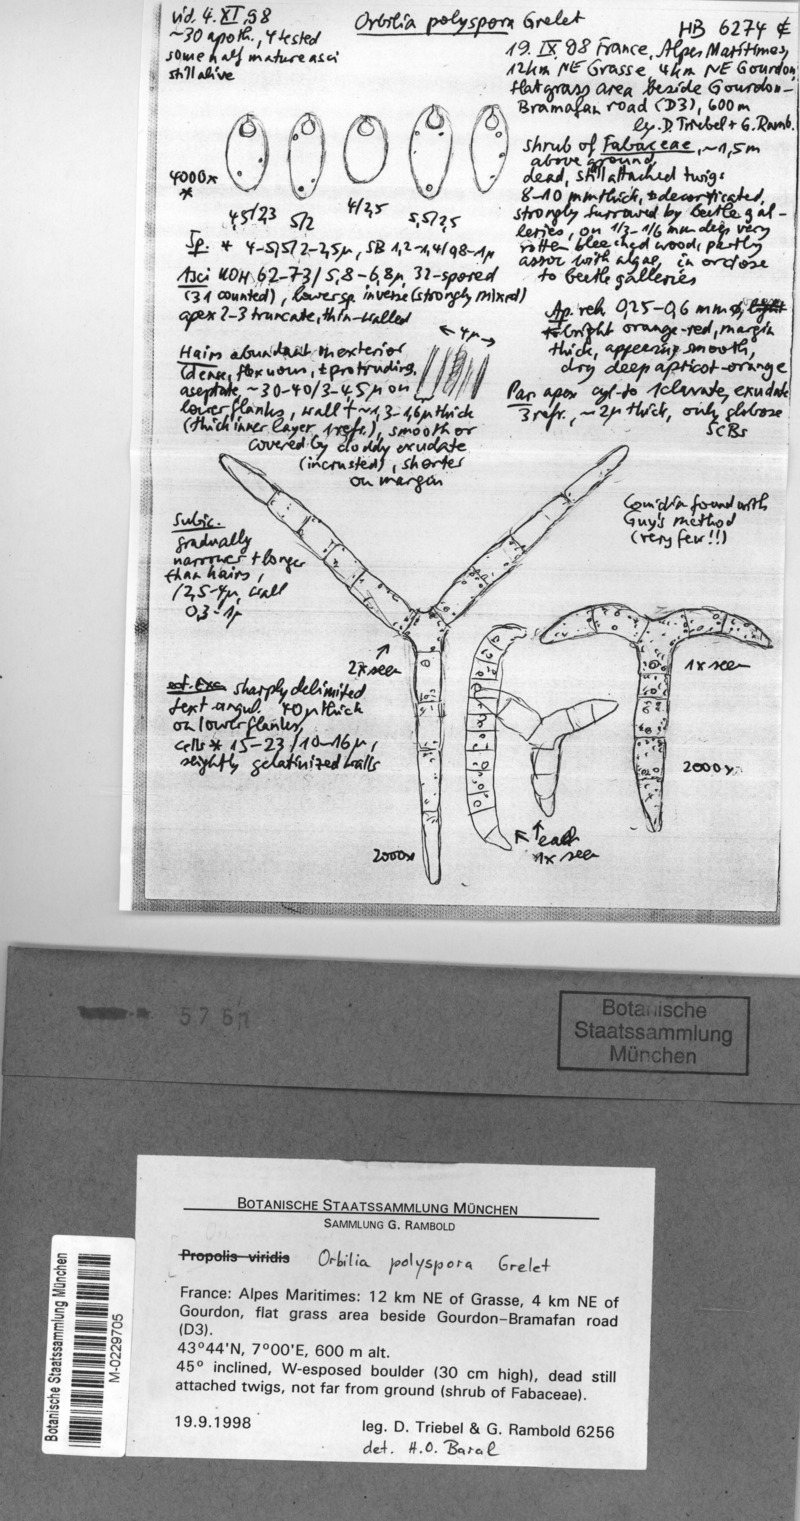 vid. 4. XI. 98
~30 apoth., 4 tested
some half mature asci
still alive
Orbilia polyspora Grelet
HB 6274
19. IX. 98 France, Alpes Maritimes,
12 km NE Grasse, 4 km NE Gourdon,
flat grass area beside Gourdon–
Bramafan road (D3), 600 m
leg. D. Triebel + G. Ramb.
shrub of Fabaceae, ~1,5 m
above ground,
dead, still attached twigs
8–10 mm thick, decorticated,
strongly furrowed by beetle gal-
leries, on 1/3-1/6 mm deep very
rotten bleached wood, partly
assoc with algae, in or close
to beetle galleries
4000x
*
4,5/2,3
5/2
4/2,5
5,5/2,5
Sp. * 4–5,5/2–2,5µ, SB 1,2–1,4/0,8–1µ
Asci KOH 62–73/5,8–6,8µ, 32-spored
(31 counted), lower sp. inverse (strongly mixed)
apex 2–3 truncate, thin-walled
Ap. reh. 0,25–0,6 mm ø, light
bright orange-red, margin
thick, appearing smooth,
dry deep apricot-orange
Par apex cyl. to 1clavate, exudate
3 refr., ~2µ thick, only globose
SCBs
4µ
Hairs abundant on exterior
(dense, flexuous, ± protruding,
aseptate, ~30–40/3–4,5µ on
lower flanks, wall † ~1,3–1,6µ thick
(thick inner layer 1refr.), smooth or
covered by cloddy exudate
(incrusted), shorter
on margin
Conidia found with
Guy's method
(very few!!)
Subic.
gradually
narrower + longer
than hairs,
/2,5–4µ, wall
0,3–1µ
2x seen
1x seen
ect. Exc. sharply delimited
text. angul. 40µ thick
on lower flanks,
cells * 15–23/10–16µ,
slightly gelatinized walls
2000x
2000x
each
1x seen
Botanische
Staatssammlung
München
BOTANISCHE STAATSSAMMLUNG MÜNCHEN
SAMMLUNG G. RAMBOLD
Propolis viridis Orbilia polyspora Grelet
France: Alpes Maritimes: 12 km NE of Grasse, 4 km NE of
Gourdon, flat grass area beside Gourdon–Bramafan road
(D3).
43°44'N, 7°00'E, 600 m alt.
45° inclined, W-esposed boulder (30 cm high), dead still
attached twigs, not far from ground (shrub of Fabaceae).
19.9.1998
leg. D. Triebel & G. Rambold 6256
det. H.O. Baral
Botanische Staatssammlung München
M-0229705